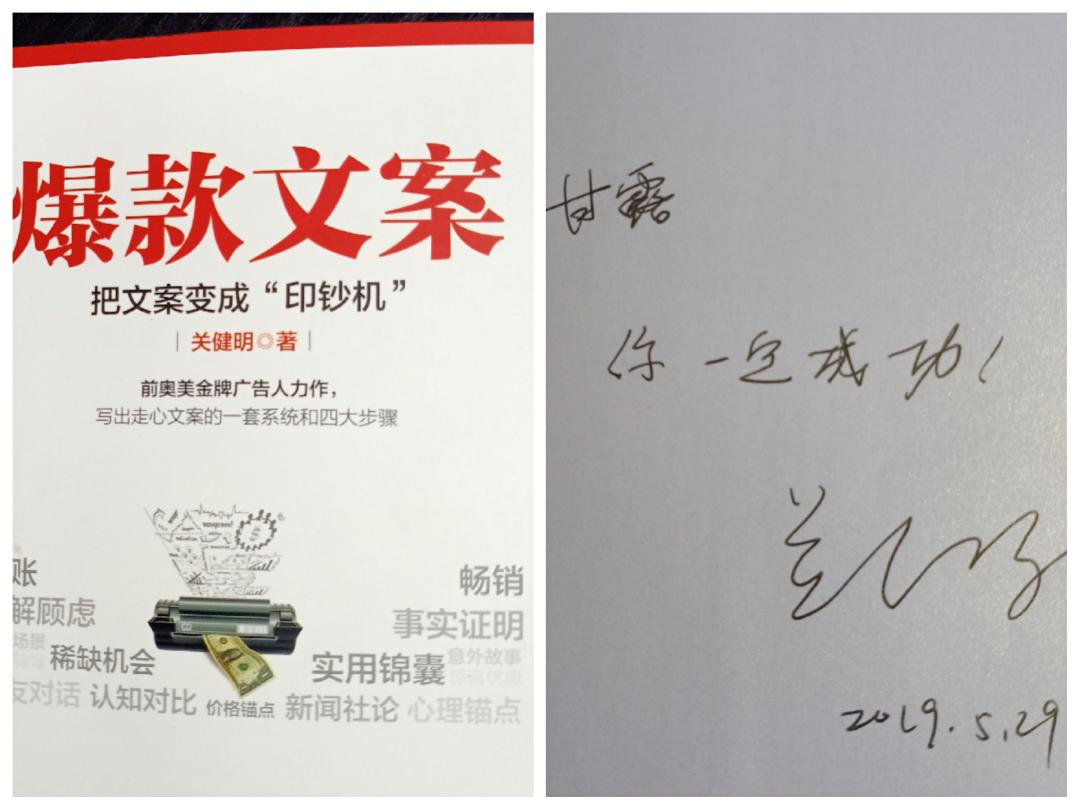 爆款文案
把文案变成“印钞机”
关健明◎著
前奥美金牌广告人力作，
写出走心文案的一套系统和四大步骤
账
畅销
解顾虑
事实证明
场景
稀缺机会
实用锦囊
意外故事
友对话 认知对比 价格锚点 新闻社论 心理锚点
甘露
你一定成功！
关健明
2019.5.29